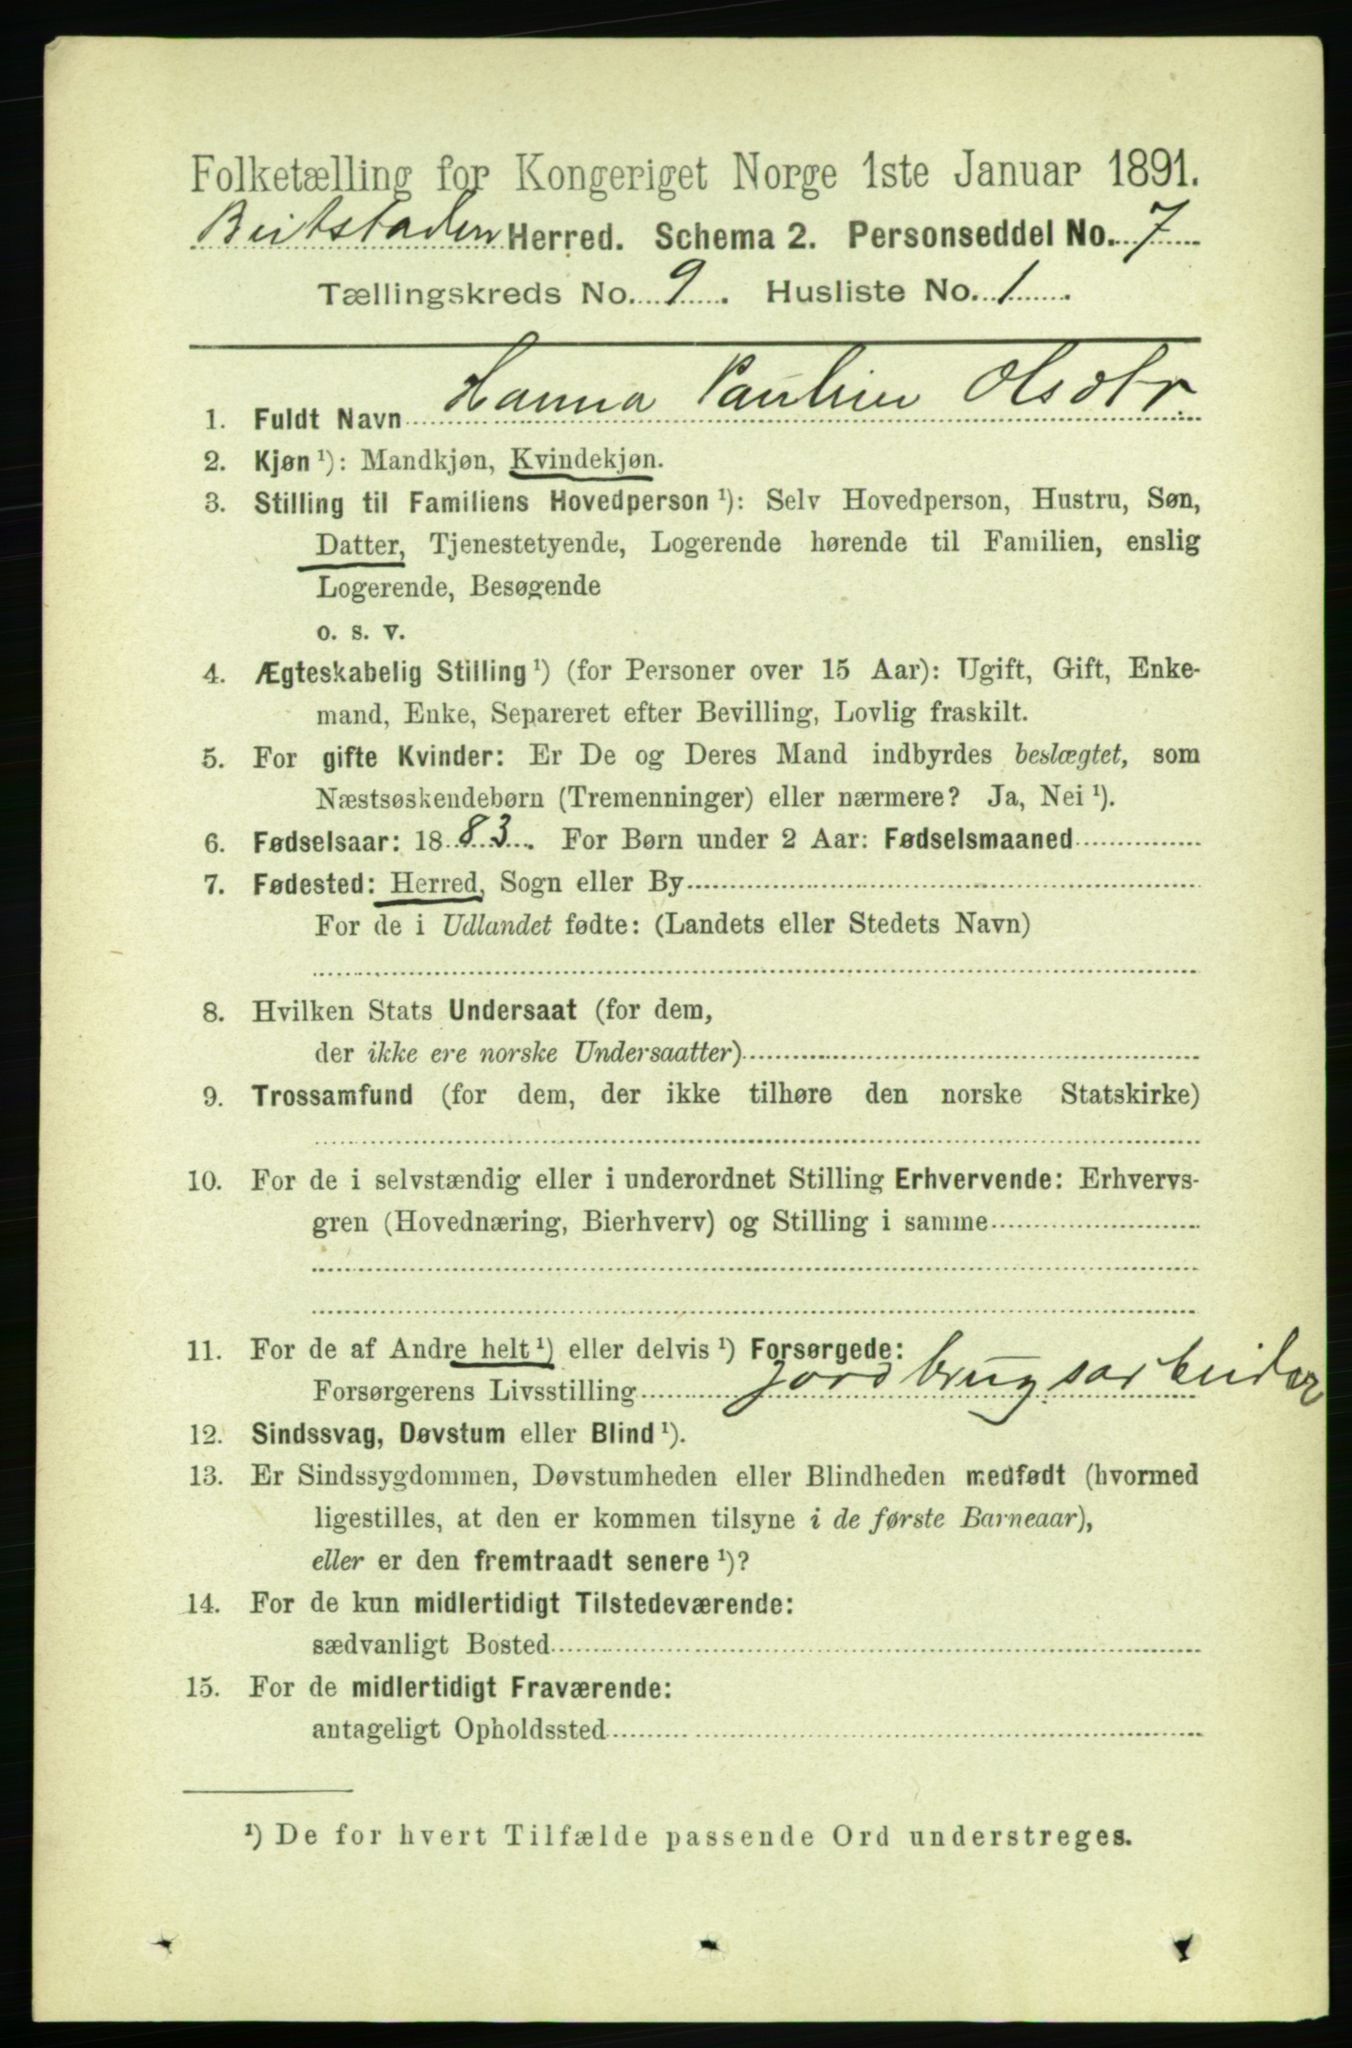 Folketælling for Kongeriget Norge 1ste Januar 1891.
Beitstaden Herred. Schema 2. Personseddel No. 7
Tællingskreds No. 9. Husliste No. 1.
1. Fuldt Navn Hanna Pauline Olsdtr.
2. Kjøn ¹): Mandkjøn, Kvindekjøn.
3. Stilling til Familiens Hovedperson ¹): Selv Hovedperson, Hustru, Søn,
Datter, Tjenestetyende, Logerende hørende til Familien, enslig
Logerende, Besøgende
o. s. v.
4. Ægteskabelig Stilling ¹) (for Personer over 15 Aar): Ugift, Gift, Enke-
mand, Enke, Separeret efter Bevilling, Lovlig fraskilt.
5. For gifte Kvinder: Er De og Deres Mand indbyrdes beslægtet, som
Næstsøskendebørn (Tremenninger) eller nærmere? Ja, Nei ¹).
6. Fødselsaar: 1883. For Børn under 2 Aar: Fødselsmaaned
7. Fødested: Herred, Sogn eller By
For de i Udlandet fødte: (Landets eller Stedets Navn)
8. Hvilken Stats Undersaat (for dem,
der ikke ere norske Undersaatter)
9. Trossamfund (for dem, der ikke tilhøre den norske Statskirke)
10. For de i selvstændig eller i underordnet Stilling Erhvervende: Erhvervs-
gren (Hovednæring, Bierhverv) og Stilling i samme
11. For de af Andre helt ¹) eller delvis ¹) Forsørgede:
Forsørgerens Livsstilling Jordbrugsarbeider
12. Sindssvag, Døvstum eller Blind ¹).
13. Er Sindssygdommen, Døvstumheden eller Blindheden medfødt (hvormed
ligestilles, at den er kommen tilsyne i de første Barneaar),
eller er den fremtraadt senere ¹)?
14. For de kun midlertidigt Tilstedeværende:
sædvanligt Bosted
15. For de midlertidigt Fraværende:
antageligt Opholdssted
¹) De for hvert Tilfælde passende Ord understreges.